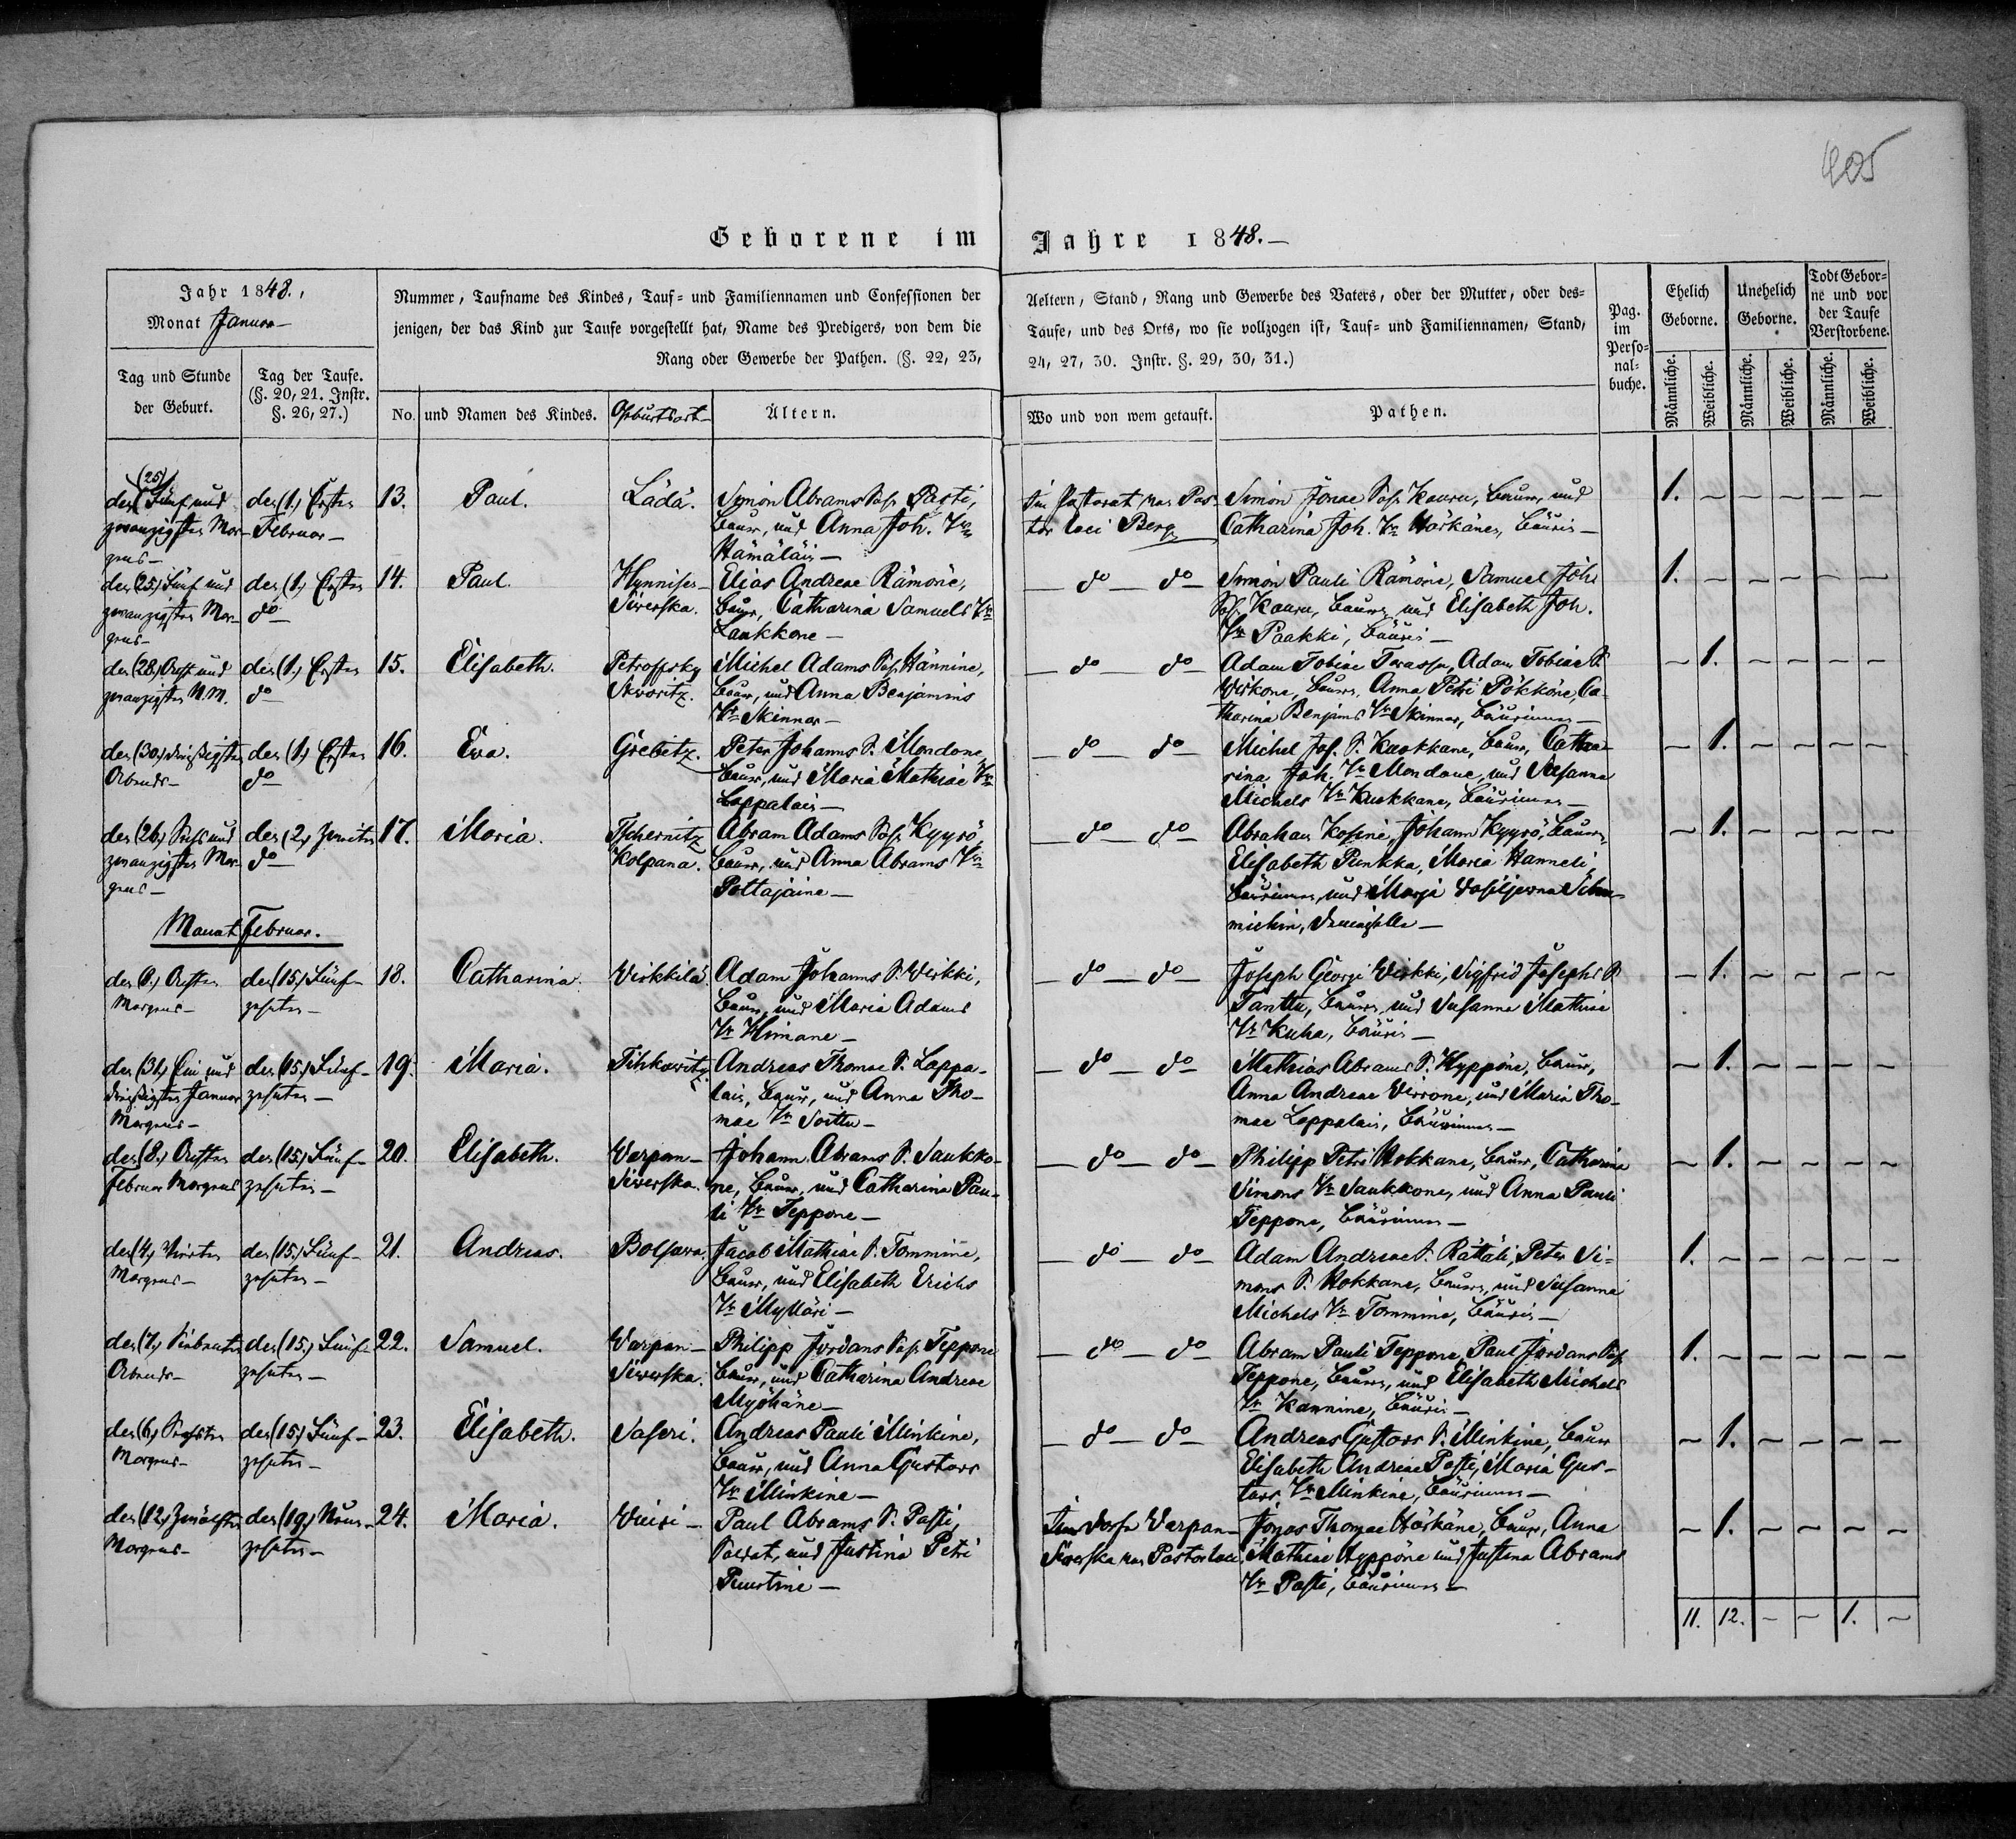 405
Geborene im Jahre 1848.
Jahr 1848.,
Monat Januar
Tag und Stunde
der Geburt.
Tag der Taufe.
(§. 20, 21. Instr.
§. 26, 27.)
Nummer, Taufname des Kindes, Tauf= und Familiennamen und Confessionen der
jenigen, der das Kind zur Taufe vorgestellt hat, Name des Predigers, von dem die
Rang oder Gewerbe der Pathen. (§. 22, 23,
No. und Namen des Kindes.
Geburtsort
Ältern.
Aeltern, Stand, Rang und Gewerbe des Vaters, oder der Mutter, oder des=
Taufe, und des Orts, wo sie vollzogen ist, Tauf= und Familiennamen, Stand,
24, 27, 30. Instr. §. 29, 30, 31.)
Wo und von wem getauft.
Pathen.
Pag.
im
Perso=
nal=
buche.
Ehelich
Geborne.
Unehelich
Geborne.
Todt Gebor=
ne und vor
der Taufe
Verstorbene.
Männliche.
Weibliche.
Männliche.
Weibliche.
Männliche.
Weibliche.
(25)
den Fünf und
zwanzigsten Mor-
gens
den (1.) Ersten
Februar
13.
Paul.
Lädä.
Simon Abrams Sohn Pasti,
Bauer, und Anna Joh. Tr
Hämäläin
Im Pastorat von Pas-
tor loci Berg
Simon Jonae Sohn Kauru, Bauer, und
Catharina Joh. Tr Härkänen, Bäurin
1.
den (25.) Fünf und
zwanzigsten Mor-
gens
den (1.) Ersten
do
14.
Paul.
Hynnisen-
Siwerska.
Elias Andreae Rämöne,
Bauer, Catharina Samuels Tr
Laukkone
do do
Simon Pauli Rämöne, Samuel Joh
Sohn Kauru, Bauern und Elisabeth Joh.
Tr Paakki, Bäurin
1.
den (28.) Acht und
zwanzigsten N.M.
den (1.) Ersten
do
15.
Elisabeth.
Petroffsky
Skworitz.
Michel Adams Sohn Hännine,
Bauer, und Anna Benjamins
Tr Skinnar
do do
Adam Tobiae Tarassu, Adam Tobiae S.
Wirkone, Bauern, Anna Petri Pökköne, Ca-
tharina Benjams Tr Skinnar, Bäurinnen
1.
den (30.) dreißigsten
Abends
den (1.) Ersten
do
16.
Eva.
Grebitz.
Peter Johanns S. Mondone,
Bauer, und Maria Mathiae Tr
Lappalain
do do
Michel Joh. S. Kuokkane, Bauer, Catha-
rina Joh. Tr Mondone, und Susanna
Michels Tr Kuokkane, Bäurinnen
1.
den (26.) Sechs und
zwanzigsten Mor-
gens
den (2.) Zweiten
do
17.
Maria.
Tschernitz
Kolpana.
Abram Adams Sohn Kyyrö,
Bauer, und Anna Abrams Tr
Pottajaine
do do
Abraham Kosine, Johann Kyyrö, Bauern
Elisabeth Punkka, Maria Hanneli,
Bäurinnen, und Marja Wasiljewna
1.
Monat Februar.
Morgens
den (15.) Fünf-
zehnten
18.
Catharina.
Wirkkilä
Adam Johanns S. Wirkki,
Bauer, und Maria Adams
Tr Himane
do do
Joseph Georgi Wirkki, Sigfrid Josephs S.
Tanttu, Bauern, und Susanna Mathiae
Tr Kuha, Bäurin
1.
den (31.) Ein und
dreißigsten Januar
Morgens
den (15.) Fünf-
zehnten
19.
Maria.
Tihkowitz
Andreas Thomae S. Lappa-
lain, Bauer, und Anna Tho-
mae Tr Soittu
do do
Mathias Abrams S. Hyppöne, Bauer,
Anna Andreae Virrone, und Maria Tho-
mae Lappalain, Bäurinnen
1.
den (8.) Achten
Februar Morgens
den (15.) Fünf-
zehnten
20.
Elisabeth.
Warpan-
Siwerska.
Johann Abrams S. Saukko-
ne, Bauer, und Catharina Pau-
li Tr Teppone
do do
Philipp Petri Hokkane, Bauer, Catharina
Simons Tr Saukkone, und Anna Pauli
Teppone, Bäurinnen
1.
den (4.) Vierten
Morgens
den (15.) Fünf-
zehnten
21.
Andreas.
Bolsawa.
Jacob Mathiae S. Tommine,
Bauer, und Elisabeth Erichs
Tr Mylläri
do do
Adam Andreae S. Rättäli, Peter Si-
mons S. Hokkane, Bauern, und Susanna
Michels Tr Tommine, Bäurin
1.
den (7.) Siebenten
Abends
den (15.) Fünf-
zehnten
22.
Samuel.
Warpan-
Siwerska.
Philipp Jordans Sohn Teppone
Bauer, und Catharina Andreae
Myöhäne
do do
Abram Pauli Teppone, Paul Jordans Sohn
Teppone, Bauern, und Elisabeth Michels
Tr Kannine, Bäurin
1.
den (6.) Sechsten
Morgens
den (15) Fünf-
zehnten
23.
Elisabeth.
Saseri.
Andreas Pauli Minkine,
Bauer, und Anna Gustavs
Tr Minkine
do do
Andreas Gustavs S. Minkine, Bauer
Elisabeth Andreae Pasti, Maria Gus-
tavs Tr Minkine, Bäurinnen
1.
den (12.) Zwölften
Morgens
den (19.) Neun-
zehnten
24.
Maria.
Wuiri
Paul Abrams S. Pasti,
Soldat, und Justina Petri
Puustine
Im Dorfe Warpan-
Siwerska von Pastor loci.
Jonas Thomae Härkäne, Bauer, Anna
Mathiae Hyppöne und Justina Abrams
Tr Pasti, Bäurinnen
1.
11. 12. 1.